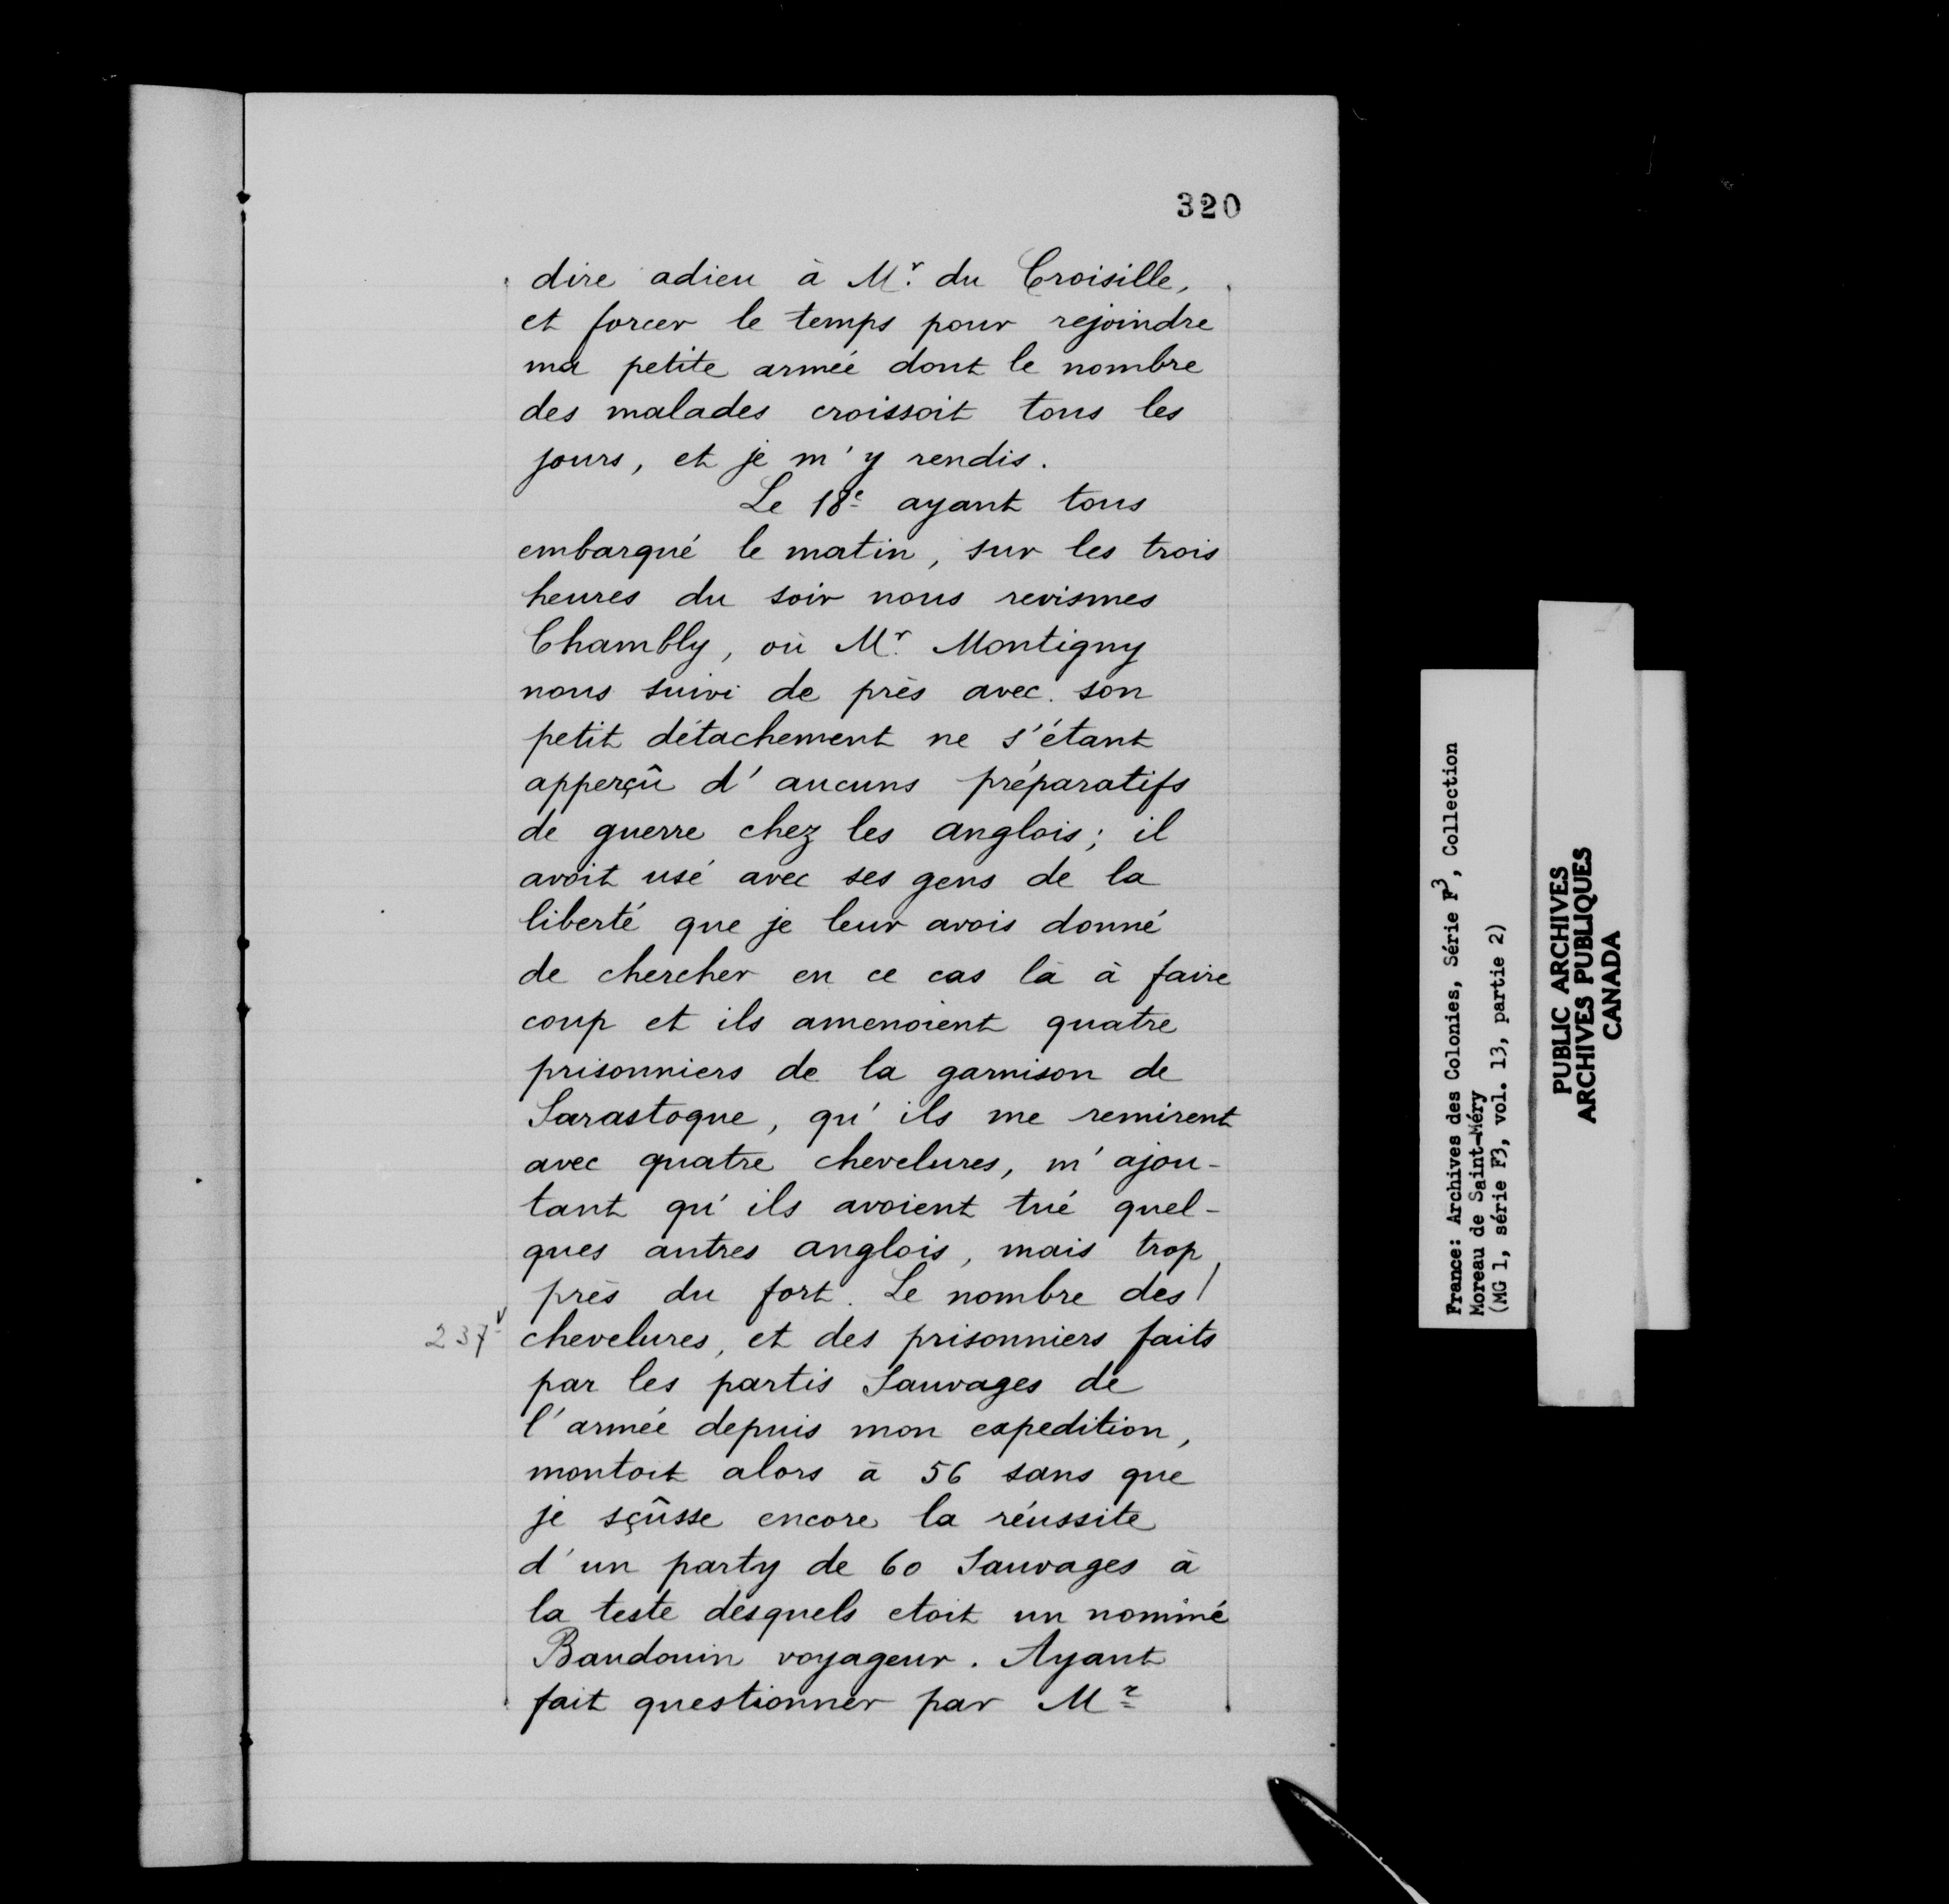 320
dire adieu à Mr. du Croisille,
et forcer le temps pour rejoindre
ma petite armée dont le nombre
des malades croissoit tous les
jours, et je m'y rendis.
Le 18e ayant tous
embarqué le matin, sur les trois
heures du soir nous revismes
Chambly, où Mr. Montigny
nous suivi de près avec son
petit détachement ne s'étant
apperçû d'aucuns préparatifs
de guerre chez les anglois; il
avoit usé avec ses gens de la
liberté que je leur avois donné
de chercher en ce cas là à faire
coup et ils amenoient quatre
prisonniers de la garnison de
Sarastogue, qu'ils me remirent
avec quatre chevelures, m'ajou-
tant qu'ils avoient tué quel-
ques autres anglois, mais trop
près du fort. Le nombre des /
237v chevelures, et des prisonniers faits
par les partis Sauvages de
l'armée depuis mon expedition,
montoit alors à 56 sans que
je sçûsse encore la réussite
d'un party de 60 Sauvages à
la teste desquels etoit un nommé
Baudouin voyageur. Ayant
fait questionner par Mr
France: Archives des Colonies, Série F3, Collection
Moreau de Saint-Méry
(MG 1, série F3, vol. 13, partie 2)
PUBLIC ARCHIVES
ARCHIVES PUBLIQUES
CANADA